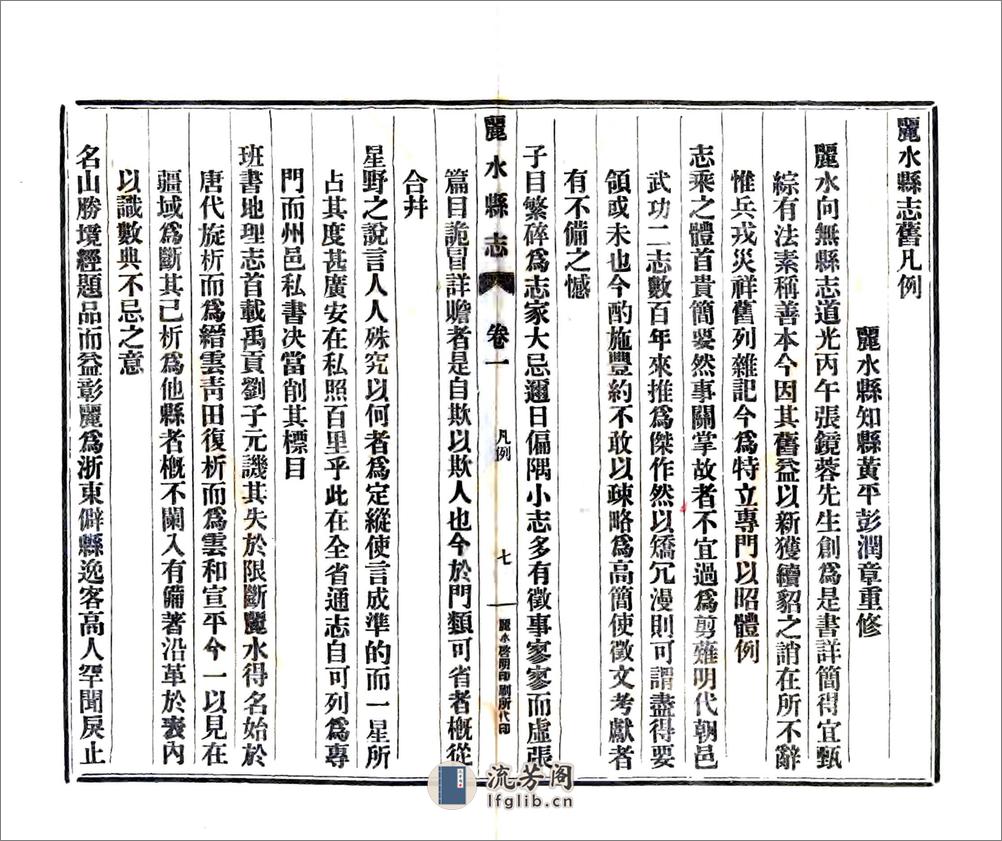 麗水縣志舊凡例
麗水縣知縣黃平彭潤章重修
麗水向無縣志道光丙午張鏡蓉先生創爲是書詳簡得宜甄
綜有法素稱善本今因其舊益以新獲續貂之誚在所不辭
惟兵戎災祥舊列雜記今爲特立專門以昭體例
志乘之體首貴簡要然事關掌故者不宜過爲剪薙明代朝邑
武功二志數百年來推爲傑作然以矯冗漫則可謂盡得要
領或未也今酌施豐約不敢以疎略爲高簡使徵文考獻者
有不備之憾
子目繁碎爲志家大忌邇日偏隅小志多有徵事寥寥而虛張
篇目詭冒詳贍者是自欺以欺人也今於門類可省者槪從
合幷
星野之說言人人殊究以何者爲定縱使言成準的而一星所
占其度甚廣安在私照百里乎此在全省通志自可列爲專
門而州邑私書决當削其標目
班書地理志首載禹貢劉子元譏其失於限斷麗水得名始於
唐代旋析而爲縉雲靑田復析而爲雲和宣平今一以見在
疆域爲斷其已析爲他縣者槪不闌入有備著沿革於表內
以識數典不忘之意
名山勝境經題品而益彰麗爲浙東僻縣逸客高人罕聞戾止
麗水縣志 卷一 凡例 七 麗水啓明印刷所代印
流芳阁
lfglib.cn